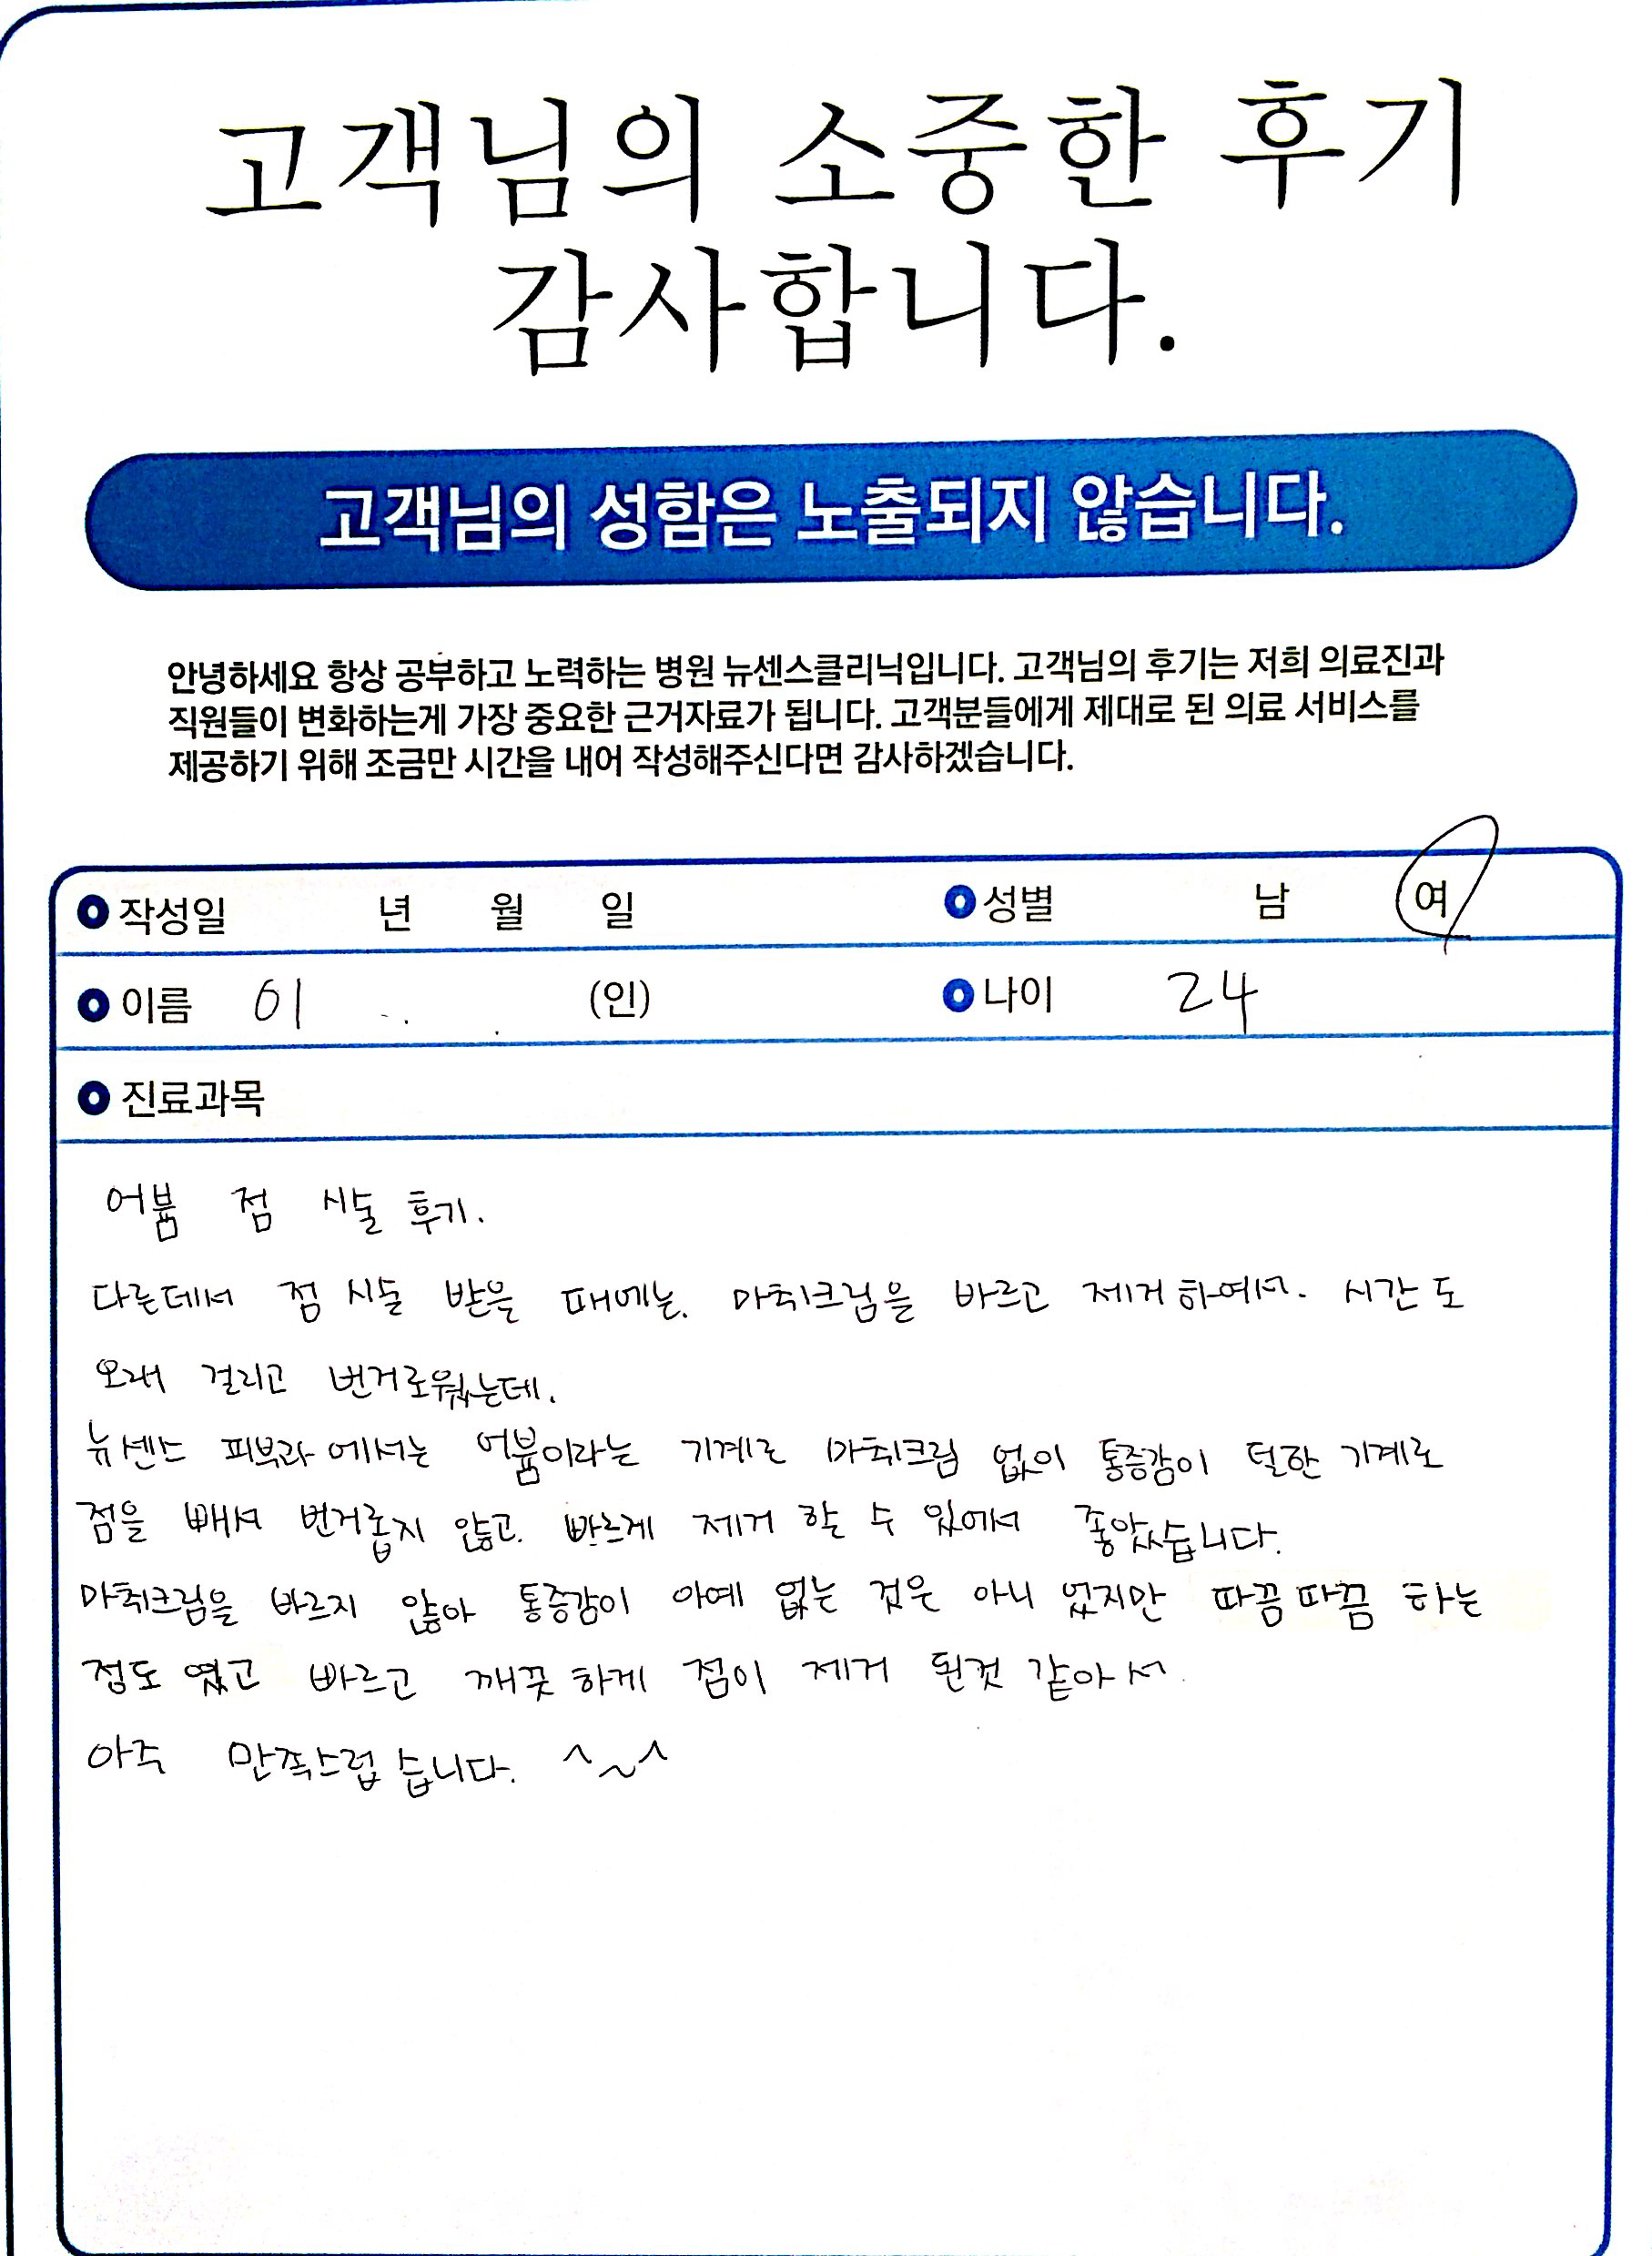 고객님의 소중한 후기
감사합니다.
고객님의 성함은 노출되지 않습니다.
안녕하세요 항상 공부하고 노력하는 병원 뉴센스클리닉입니다. 고객님의 후기는 저희 의료진과
직원들이 변화하는게 가장 중요한 근거자료가 됩니다. 고객분들에게 제대로 된 의료 서비스를
제공하기 위해 조금만 시간을 내어 작성해주신다면 감사하겠습니다.
작성일 년 월 일 성별 남 여
이름 이 (인) 나이 24
진료과목
어븀 점 시술 후기.
다른데서 점 시술 받을 때에는. 마취크림을 바르고 제거하여서. 시간도
오래 걸리고 번거로웠는데.
뉴센스 피부과에서는 어븀이라는 기계로 마취크림 없이 통증감이 덜한 기계로
점을 빼서 번거롭지 않고. 빠르게 제거 할 수 있에서 좋았습니다.
마취크림을 바르지 않아 통증감이 아예 없는 것은 아니 었지만 따끔따끔 하는
정도 였고 빠르고 깨끗하게 점이 제거 된것 같아서.
아주 만족스럽습니다. ^~^